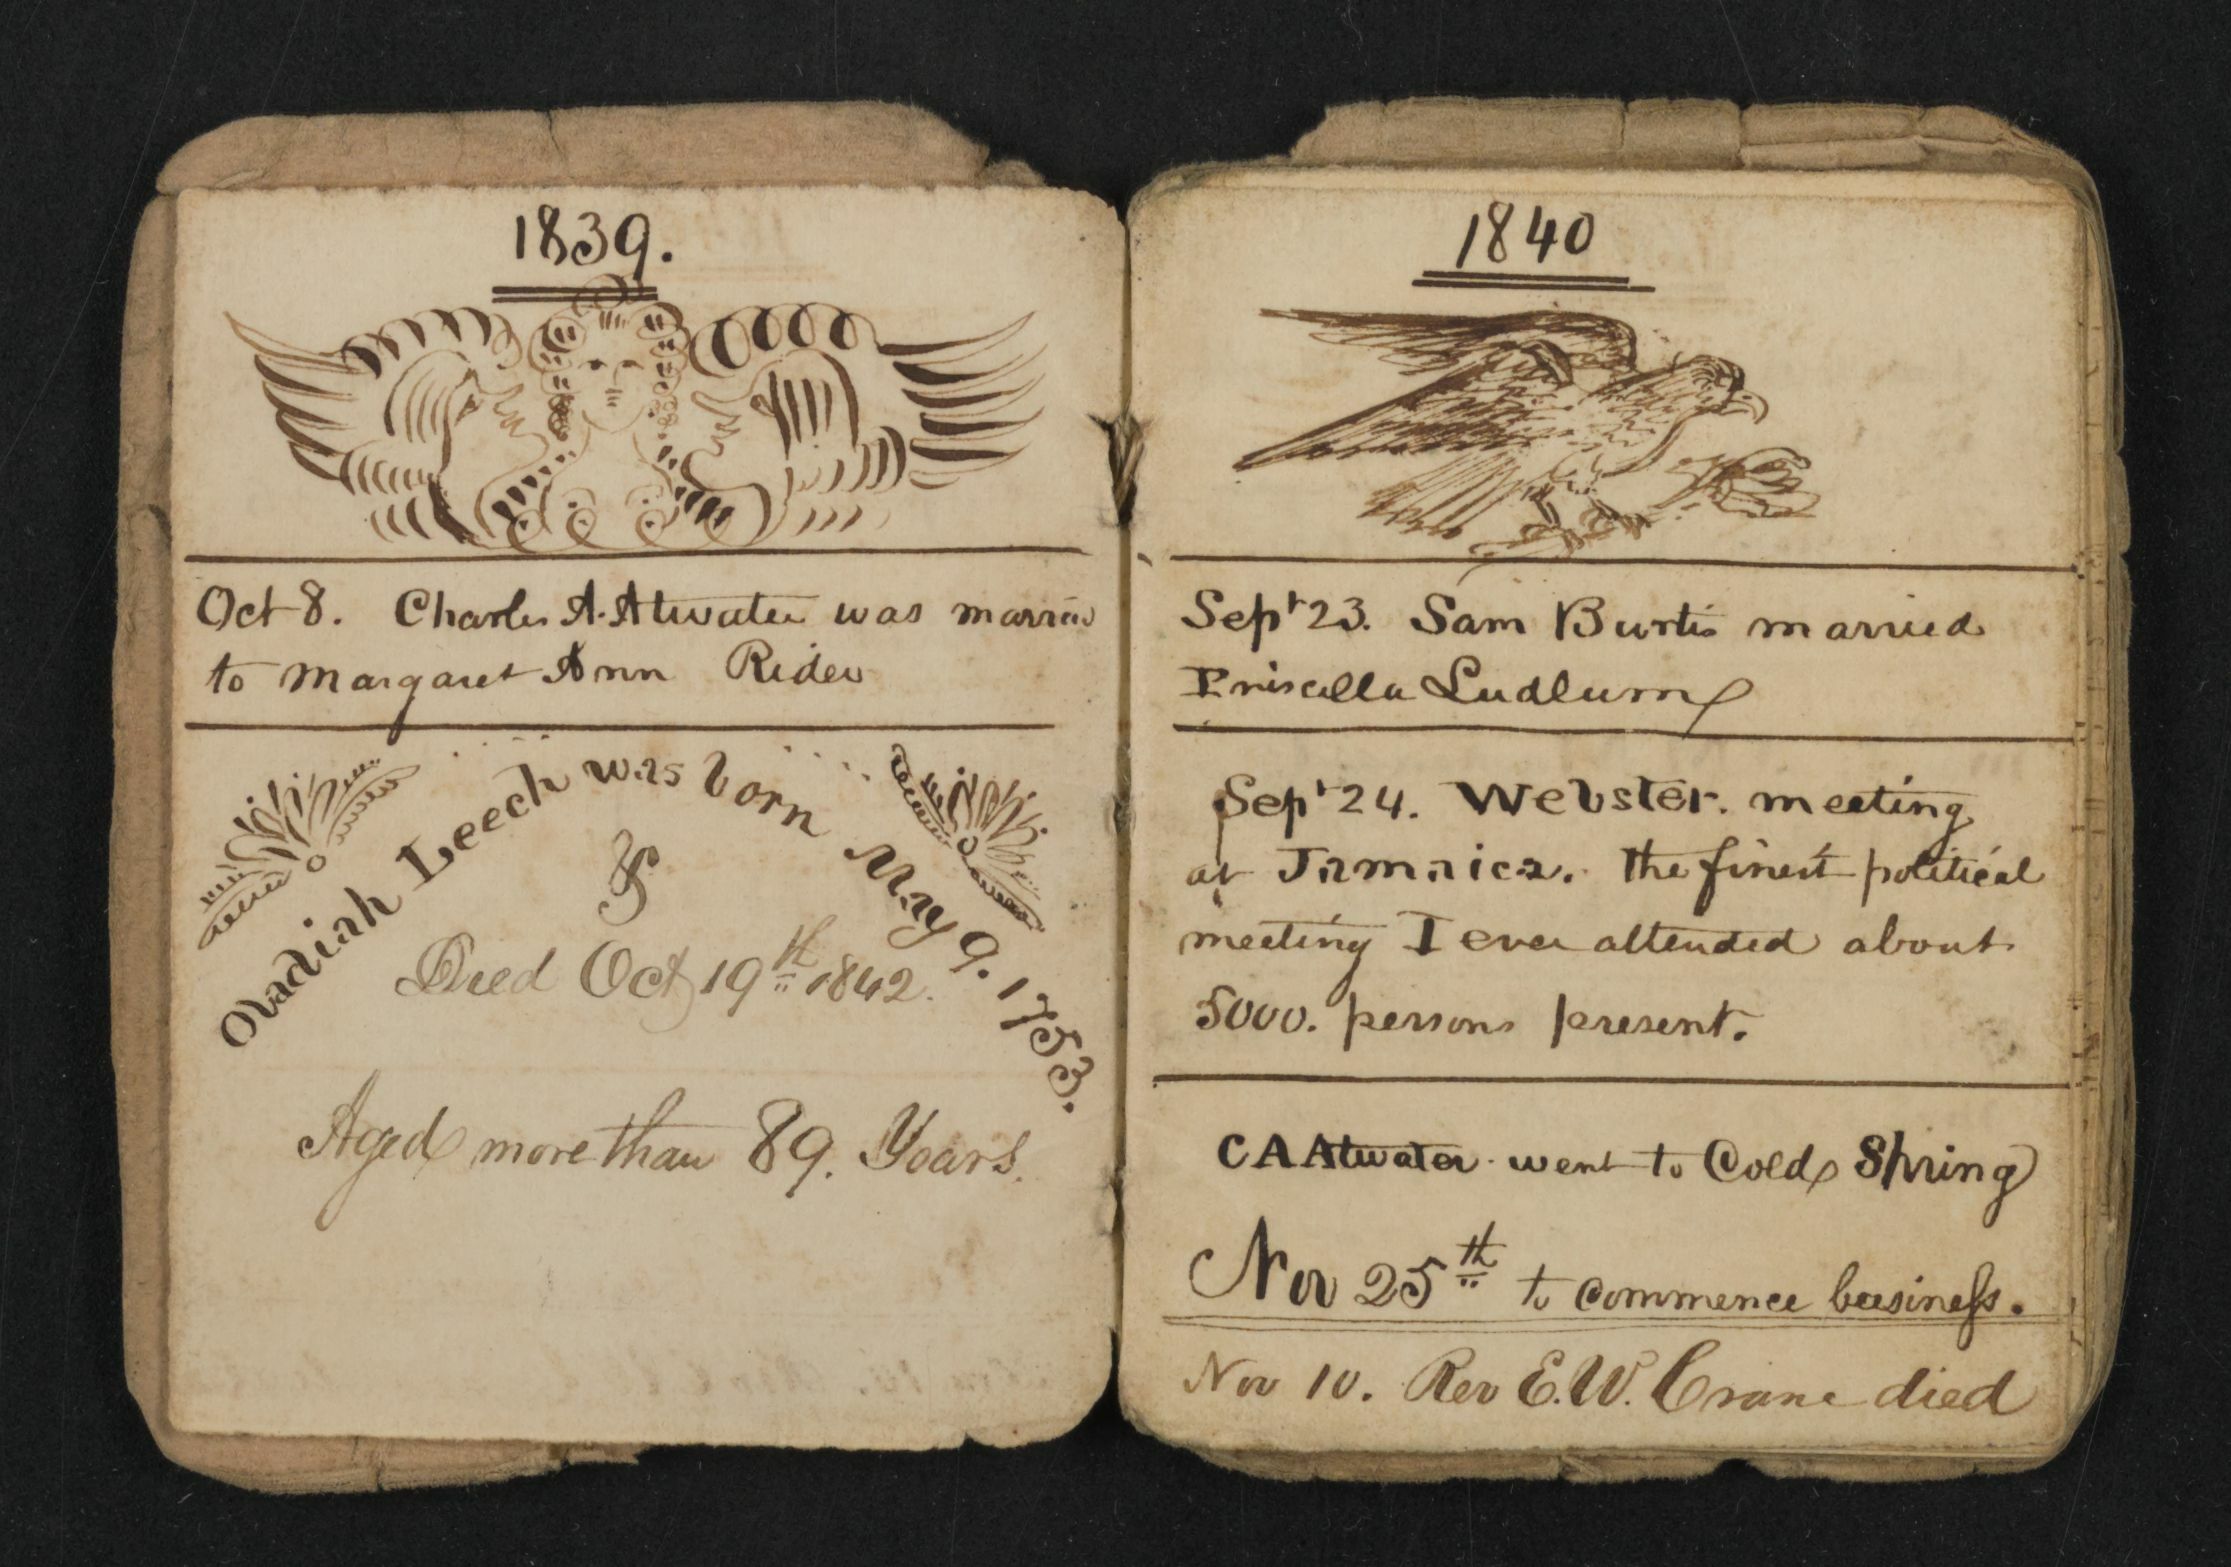 1839.
Oct 8. Charles A. Atwater was married
to Margaret Ann Rider
Obadiah Leech was born May 9. 1753.
&
Died Oct 19th 1842.
Aged more than 89. Years.
1840
Sept 23. Sam Burtis married
Priscilla Ludlum
Sept 24. Webster. meeting
at Jamaica. the finest political
meeting I ever attended about
5000. persons present.
C A Atwater went to Cold Spring
Nov 25th to commence business.
Nov 10. Rev E. W. Crane died